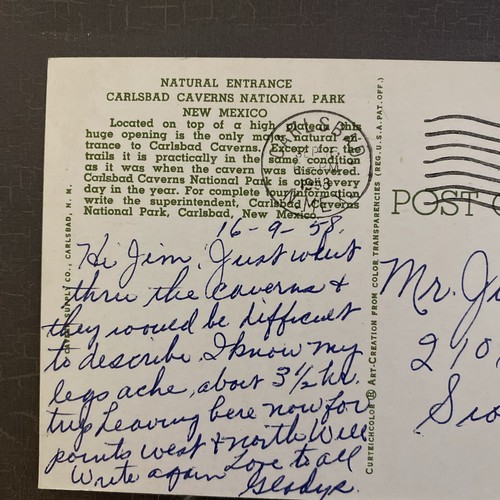 NATURAL ENTRANCE
CARLSBAD CAVERNS NATIONAL PARK
NEW MEXICO
Located on top of a high plateau this
huge opening is the only major natural en-
trance to Carlsbad Caverns. Except for the
trails it is practically in the same condition
as it was when the cavern was discovered.
Carlsbad Caverns National Park is open every
day in the year. For complete information
write the superintendent, Carlsbad Caverns
National Park, Carlsbad, New Mexico.
16-9-58.
Hi Jim, Just went
thru the caverns &
they would be difficult
to describe. I know my
legs ache, about 3½ hr.
trip Leaving here now for
points west & north Will
write again Love to all
Gladys.
SUPPLY CO., CARLSBAD, N. M.
CURTEICHCOLOR ® ART-CREATION FROM COLOR TRANSPARENCIES (REG. U.S.A. PAT. OFF.)
POST
Mr. Ji
210